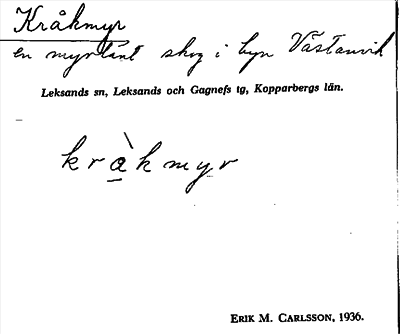 Kråkmyr
en myrlänt skog i byn Västanvik
Leksands sn, Leksands och Gagnefs tg, Kopparbergs län.
kràkmyr
ERIK M. CARLSSON, 1936.